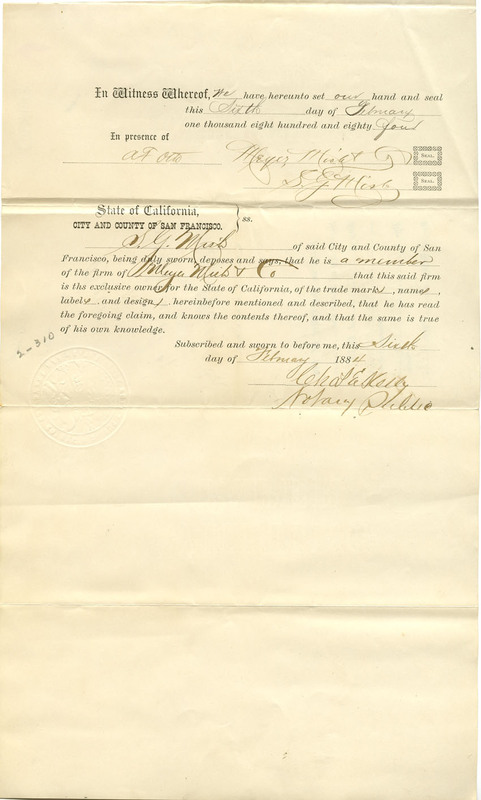 In Witness Whereof, we have hereunto set our hand and seal
this Sixth day of February
one thousand eight hundred and eighty four
In presence of
Meyer Mish & Co SEAL.
S. G. Mish SEAL.
State of California,
CITY AND COUNTY OF SAN FRANCISCO. ss.
S. G. Mish of said City and County of San
Francisco, being duly sworn, deposes and says, that he is a member
of the firm of Meyer Mish & Co that this said firm
is the exclusive owner for the State of California, of the trade marks, names,
labels and designs hereinbefore mentioned and described, that he has read
the foregoing claim, and knows the contents thereof, and that the same is true
of his own knowledge.
2-310
Subscribed and sworn to before me, this Sixth
day of February 1884
Notary Public